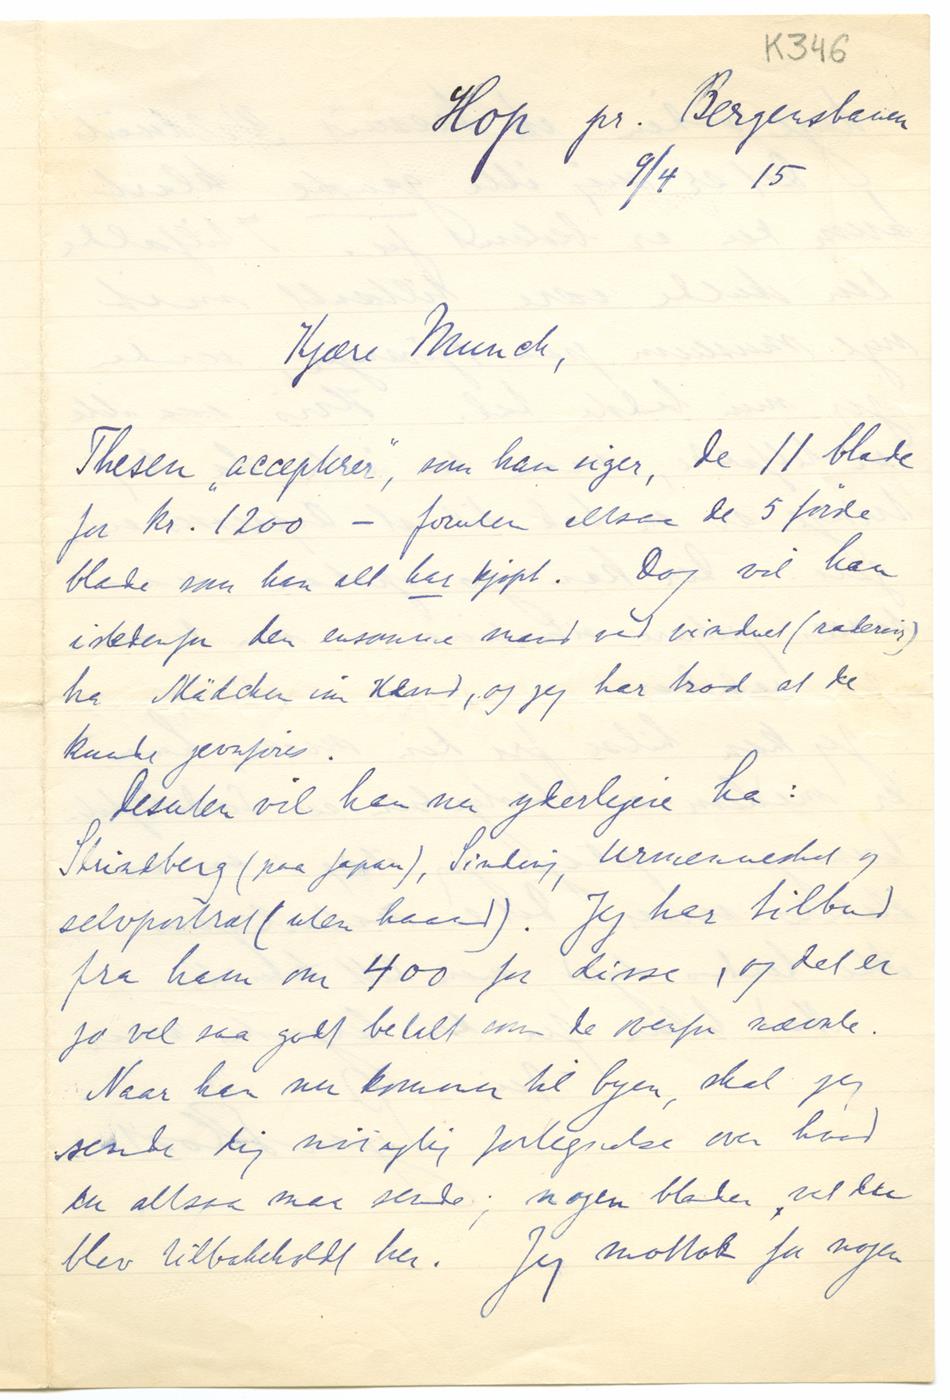 K346
Hop pr. Bergensbanen
9/4 15
Kjære Munch,
Thesen „accepterer“, som han siger, de 11 blade
for kr. 1200 – foruten altsaa de 5 förste
blade som han alt har kjøpt. Dog vil han
istedenfor den ensomme mand ved vinduet (radering)
ha Mädchen im Hemd, og jeg har trod at de
kunde jevnføres.
Desuten vil han nu yderligere ha:
Strindberg (paa Japan), Sinding, Urmennesket og
selvportræt (uten haand). Jeg har tilbud
fra ham om 400 for disse, og det er
jo vel saa godt betalt som de ovenfor nævnte.
Naar han nu kommer til byen, skal jeg
sende dig nöiagtig fortegnelse over hvad
du altsaa maa sende; nogen blader
blev tilbakeholdt her. Jeg mottok for nogen